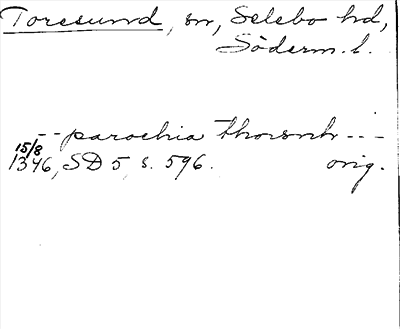 Toresund, sn, Selebo hd,
Söderm. l.
-- parochia thorsnh ---
15/8
1346, SD 5, s. 596. orig.